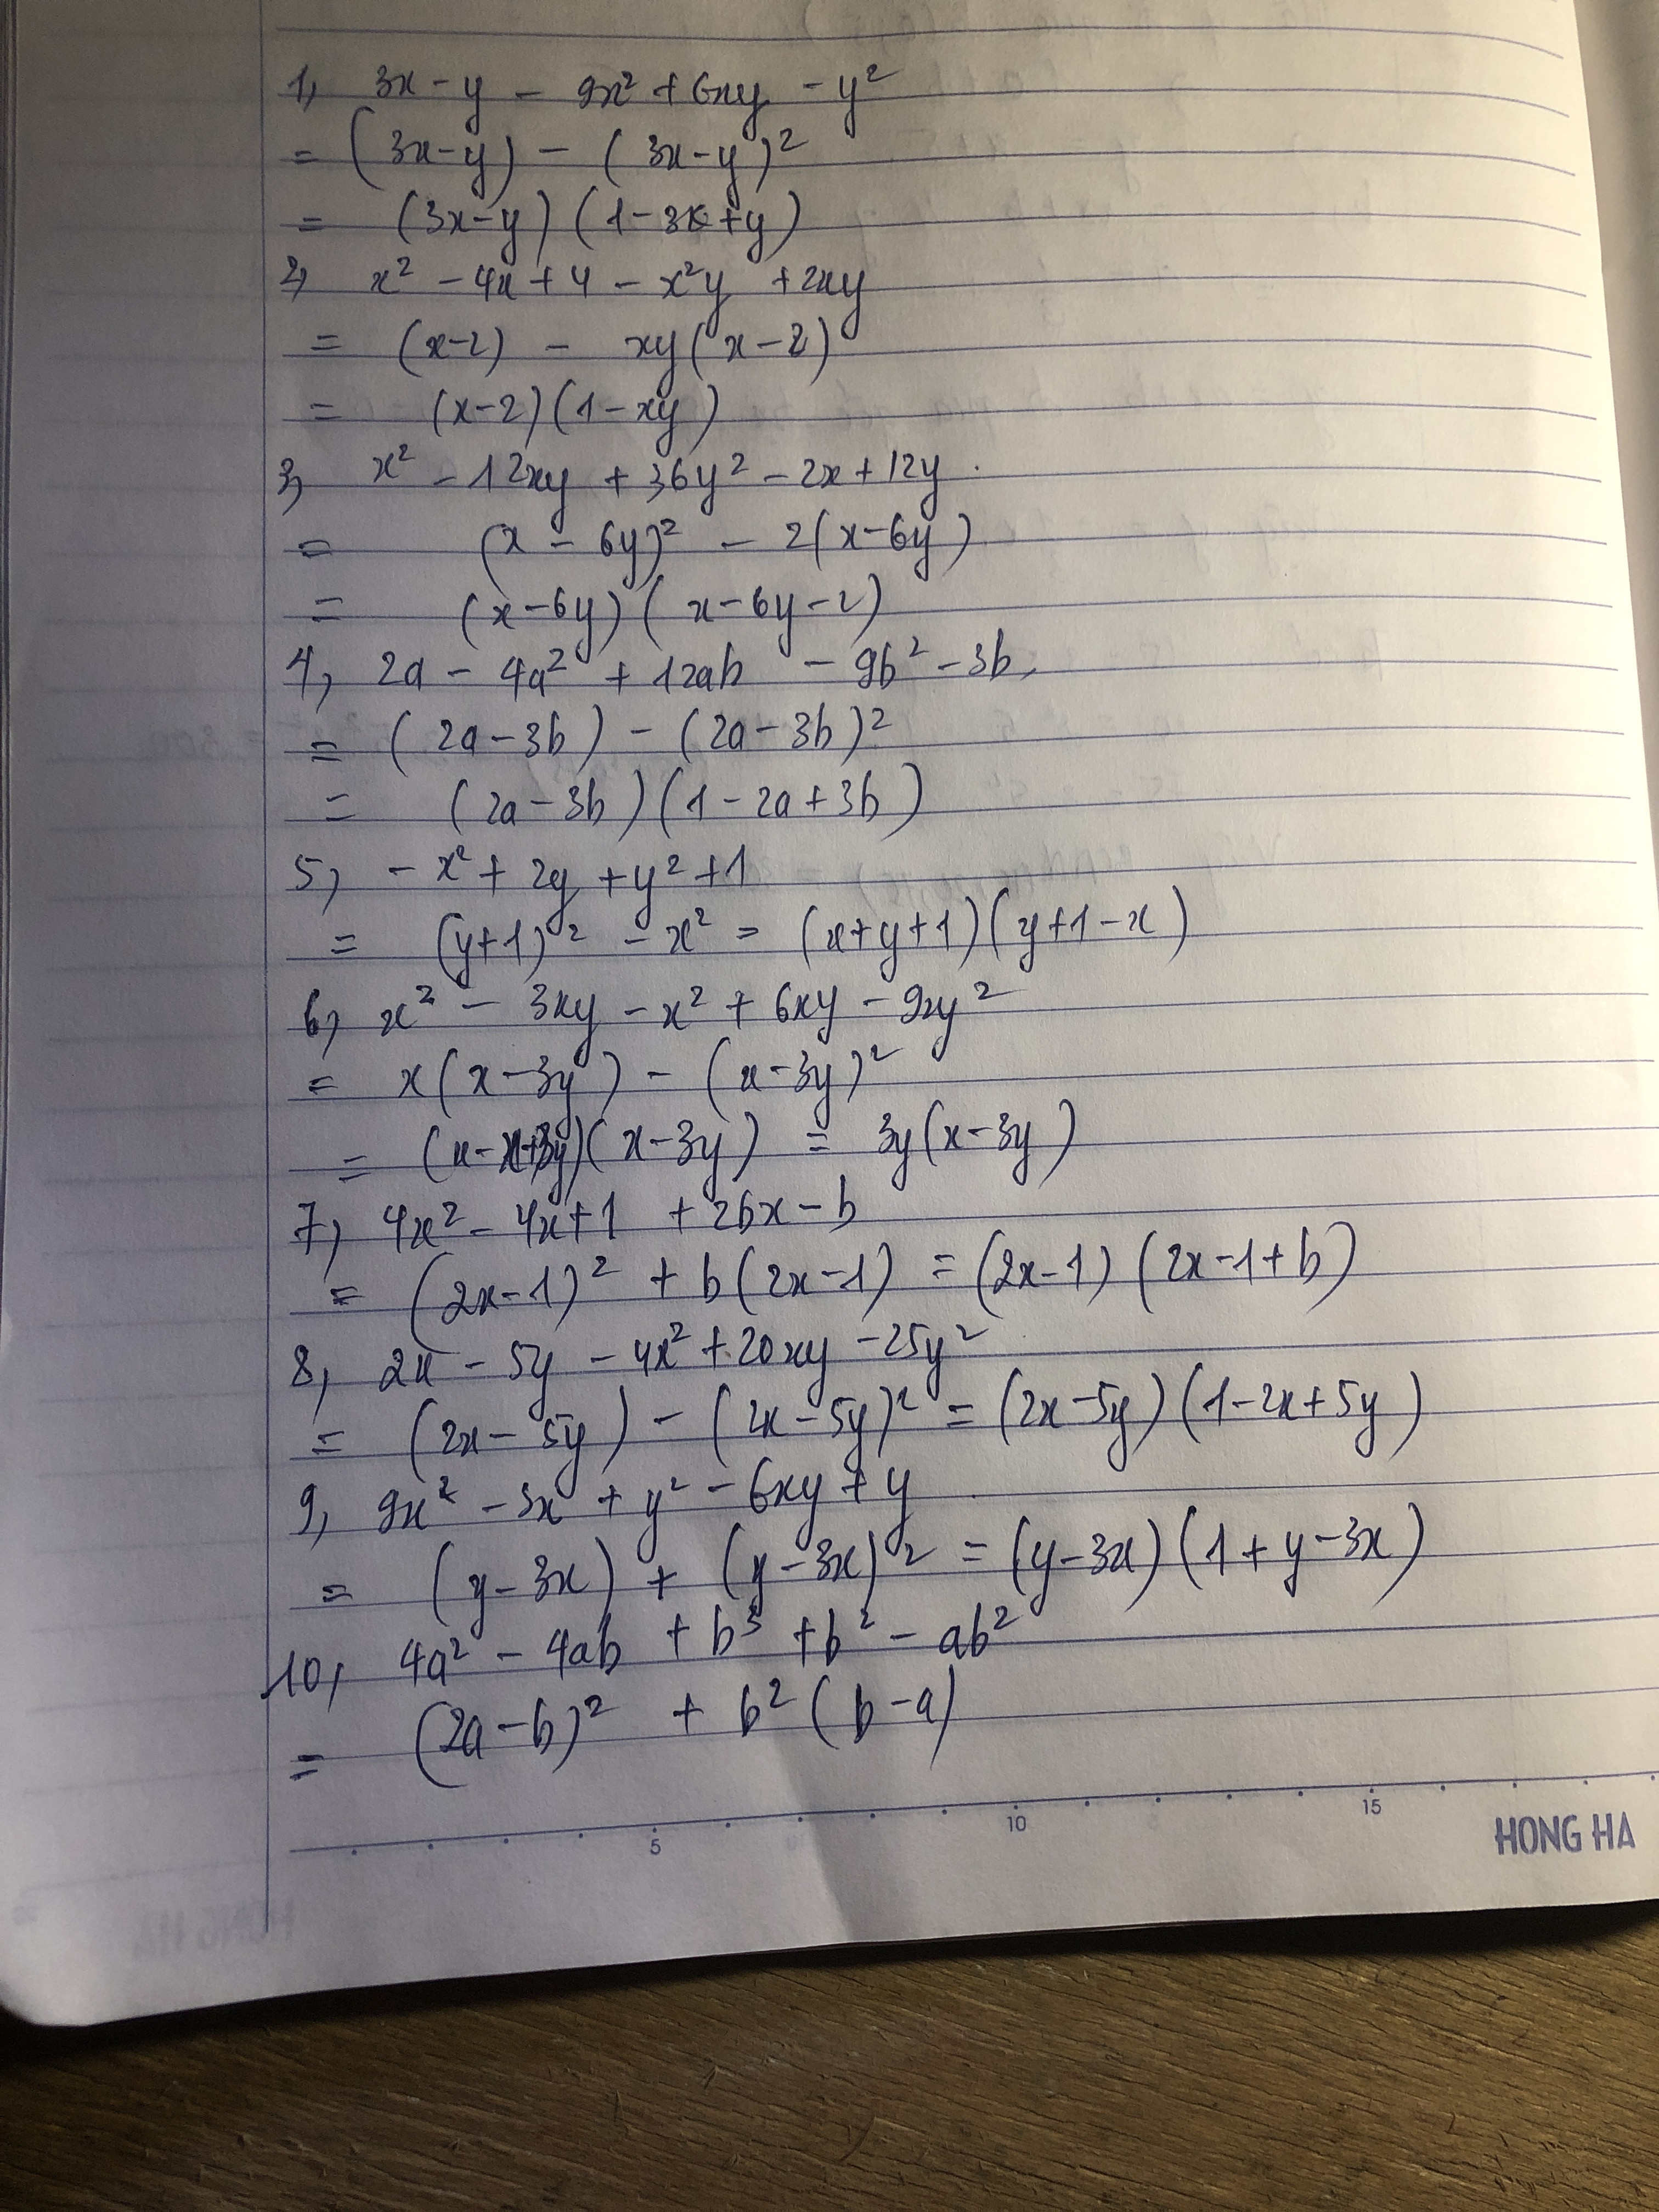 1, 3x - y - 9x² + 6xy - y²
= (3x-y) - (3x-y)²
= (3x-y)(1-3x+y)
2, x² - 4x + 4 - x²y + 2xy
= (x-2) - xy(x-2)
= (x-2)(1-xy)
3, x² - 12xy + 36y² - 2x + 12y.
= (x - 6y)² - 2(x-6y)
= (x-6y)(x-6y-2)
4, 2a - 4a² + 12ab - 9b² - 3b.
= (2a-3b) - (2a-3b)²
= (2a-3b)(1-2a+3b)
5, -x² + 2y + y² + 1
= (y+1)² - x² = (x+y+1)(y+1-x)
6, x² - 3xy - x² + 6xy - 9xy²
= x(x-3y) - (x-3y)²
= (x-x+3y)(x-3y) = 3y(x-3y)
7, 4x² - 4x + 1 + 2bx - b
= (2x-1)² + b(2x-1) = (2x-1)(2x-1+b)
8, 2x - 5y - 4x² + 20xy - 25y²
= (2x-5y) - (2x-5y)² = (2x-5y)(1-2x+5y)
9, 9x² - 3x + y² - 6xy + y
= (y-3x) + (y-3x)² = (y-3x)(1+y-3x)
10, 4a² - 4ab + b³ + b² - ab²
= (2a-b)² + b²(b-a)
5 10 15
HONG HA